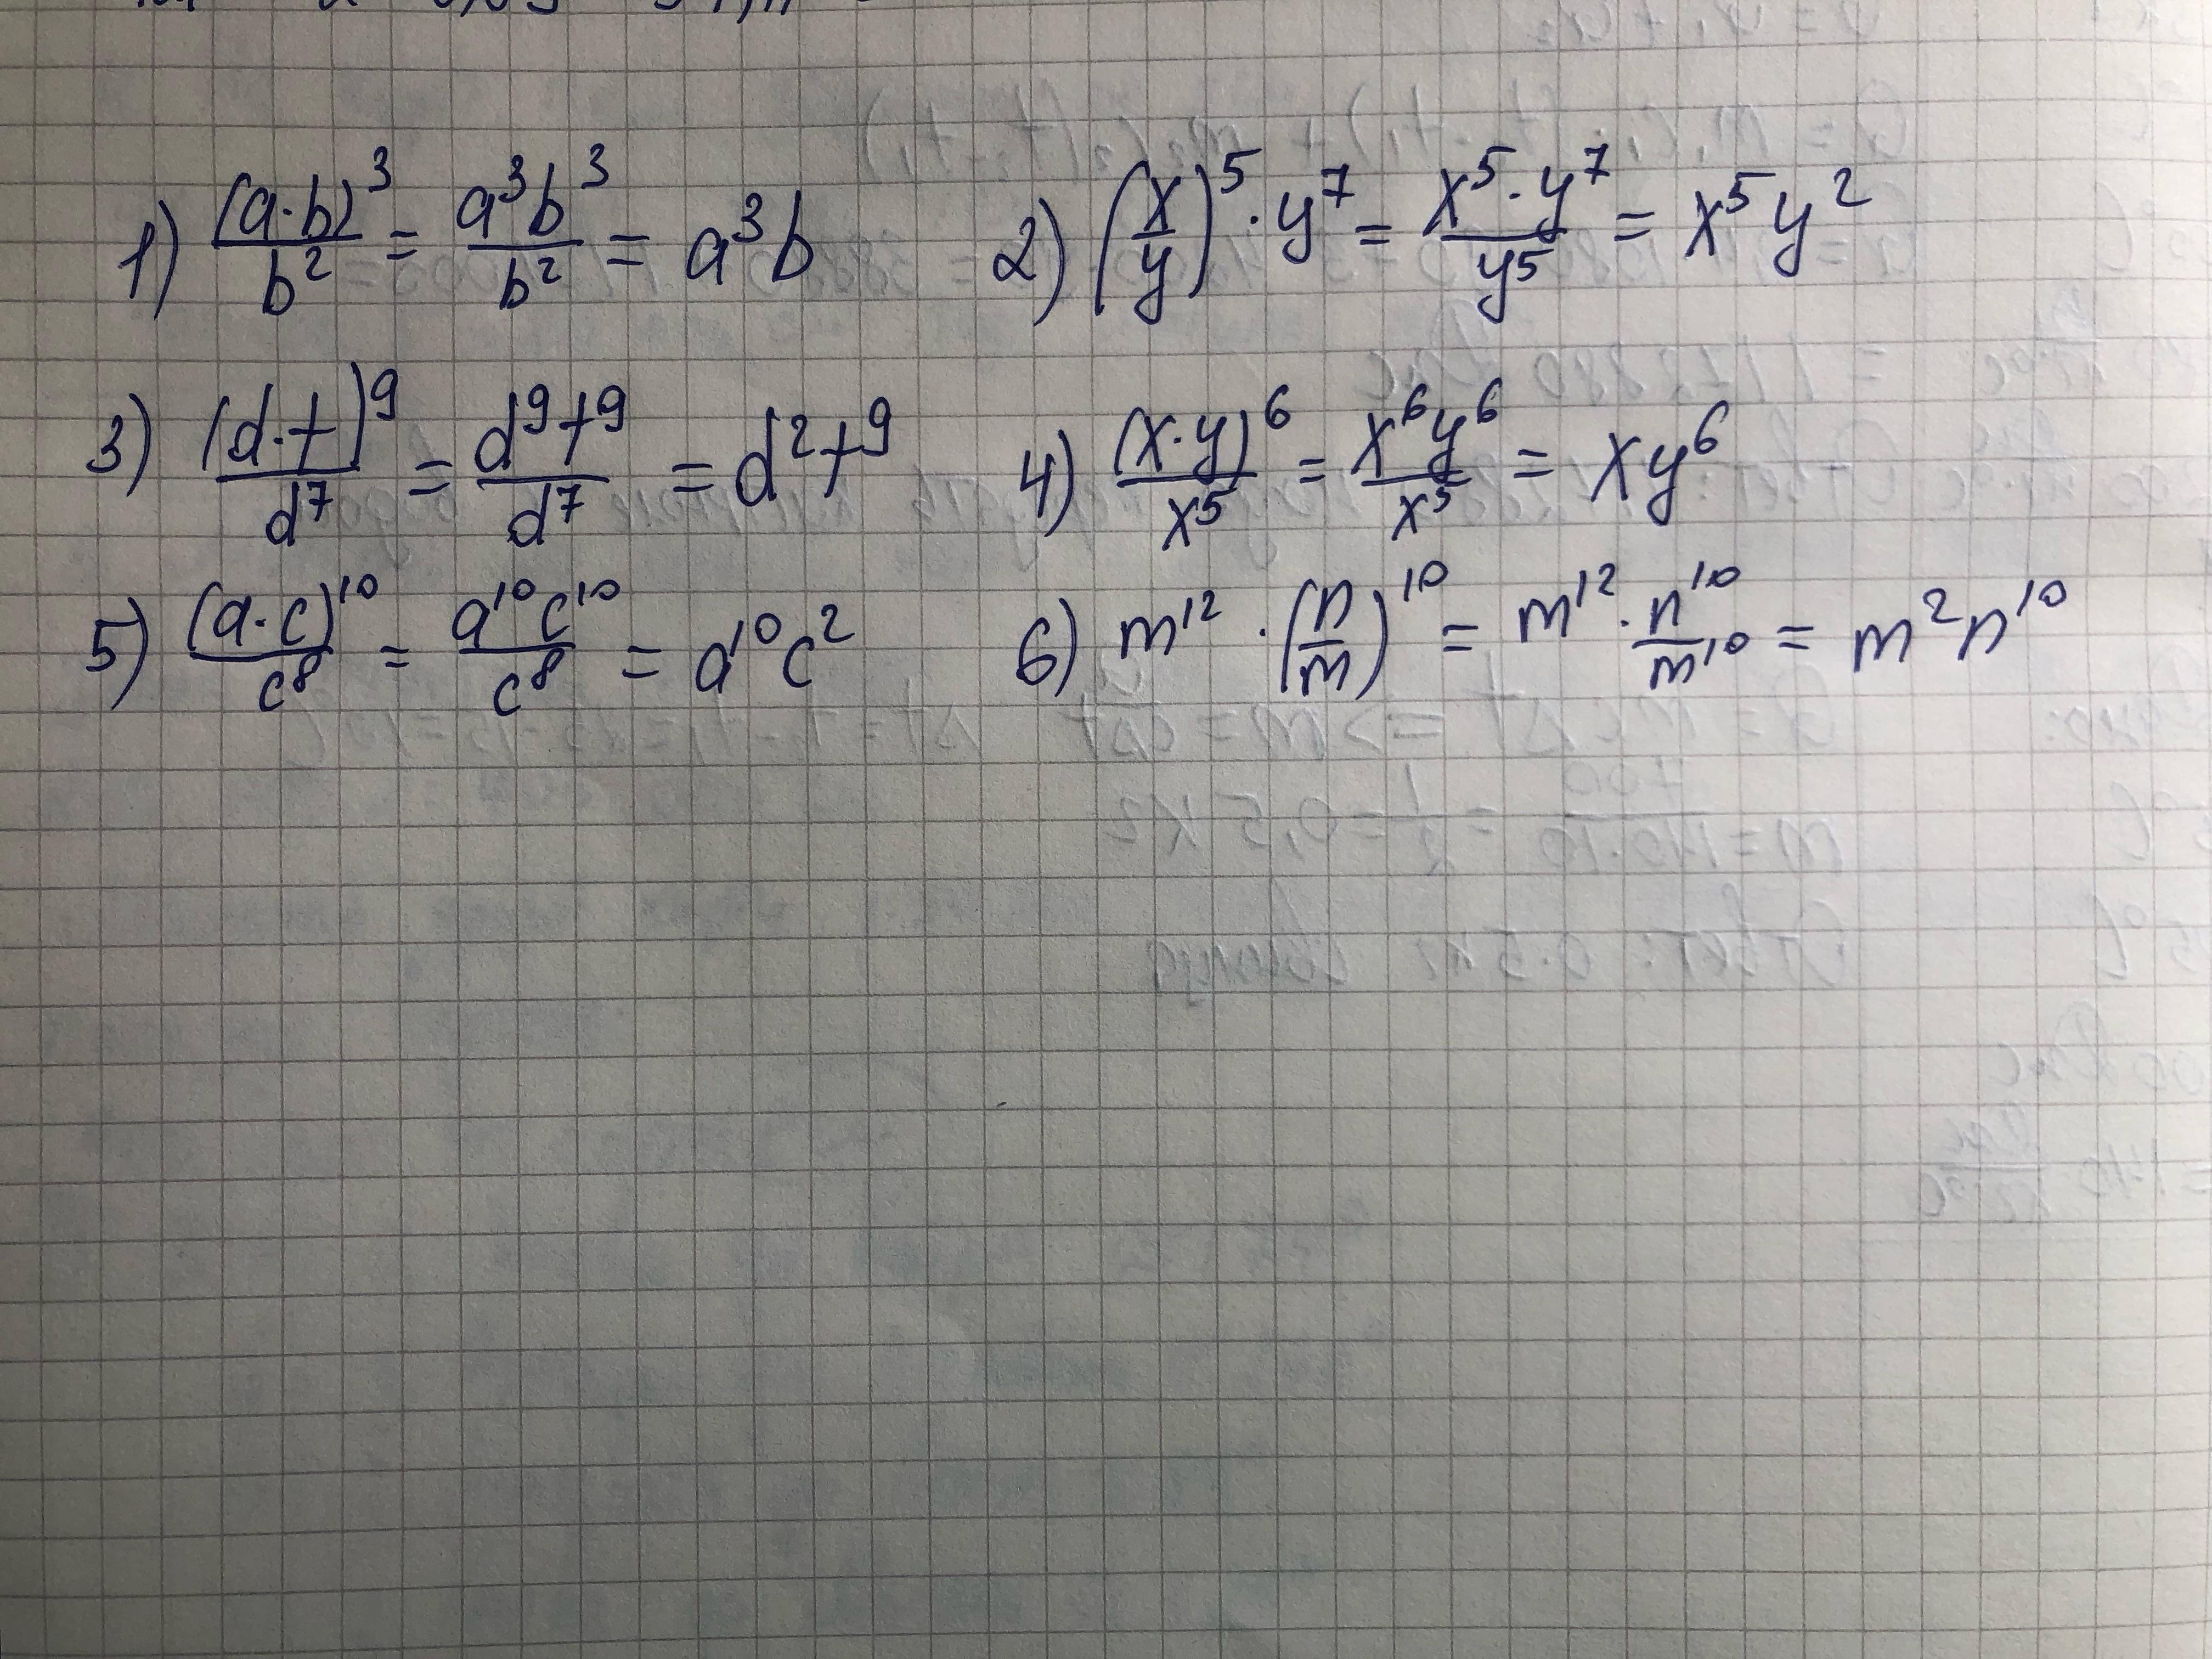 1) (a·b)³/b² = a³b³/b² = a³b 2) (x/y)⁵·y⁷ = x⁵·y⁷/y⁵ = x⁵y²
3) (d·t)⁹/d⁷ = d⁹t⁹/d⁷ = d²t⁹ 4) (x·y)⁶/x⁵ = x⁶y⁶/x⁵ = xy⁶
5) (a·c)¹⁰/c⁸ = a¹⁰c¹⁰/c⁸ = a¹⁰c² 6) m¹²·(n/m)¹⁰ = m¹²·n¹⁰/m¹⁰ = m²n¹⁰